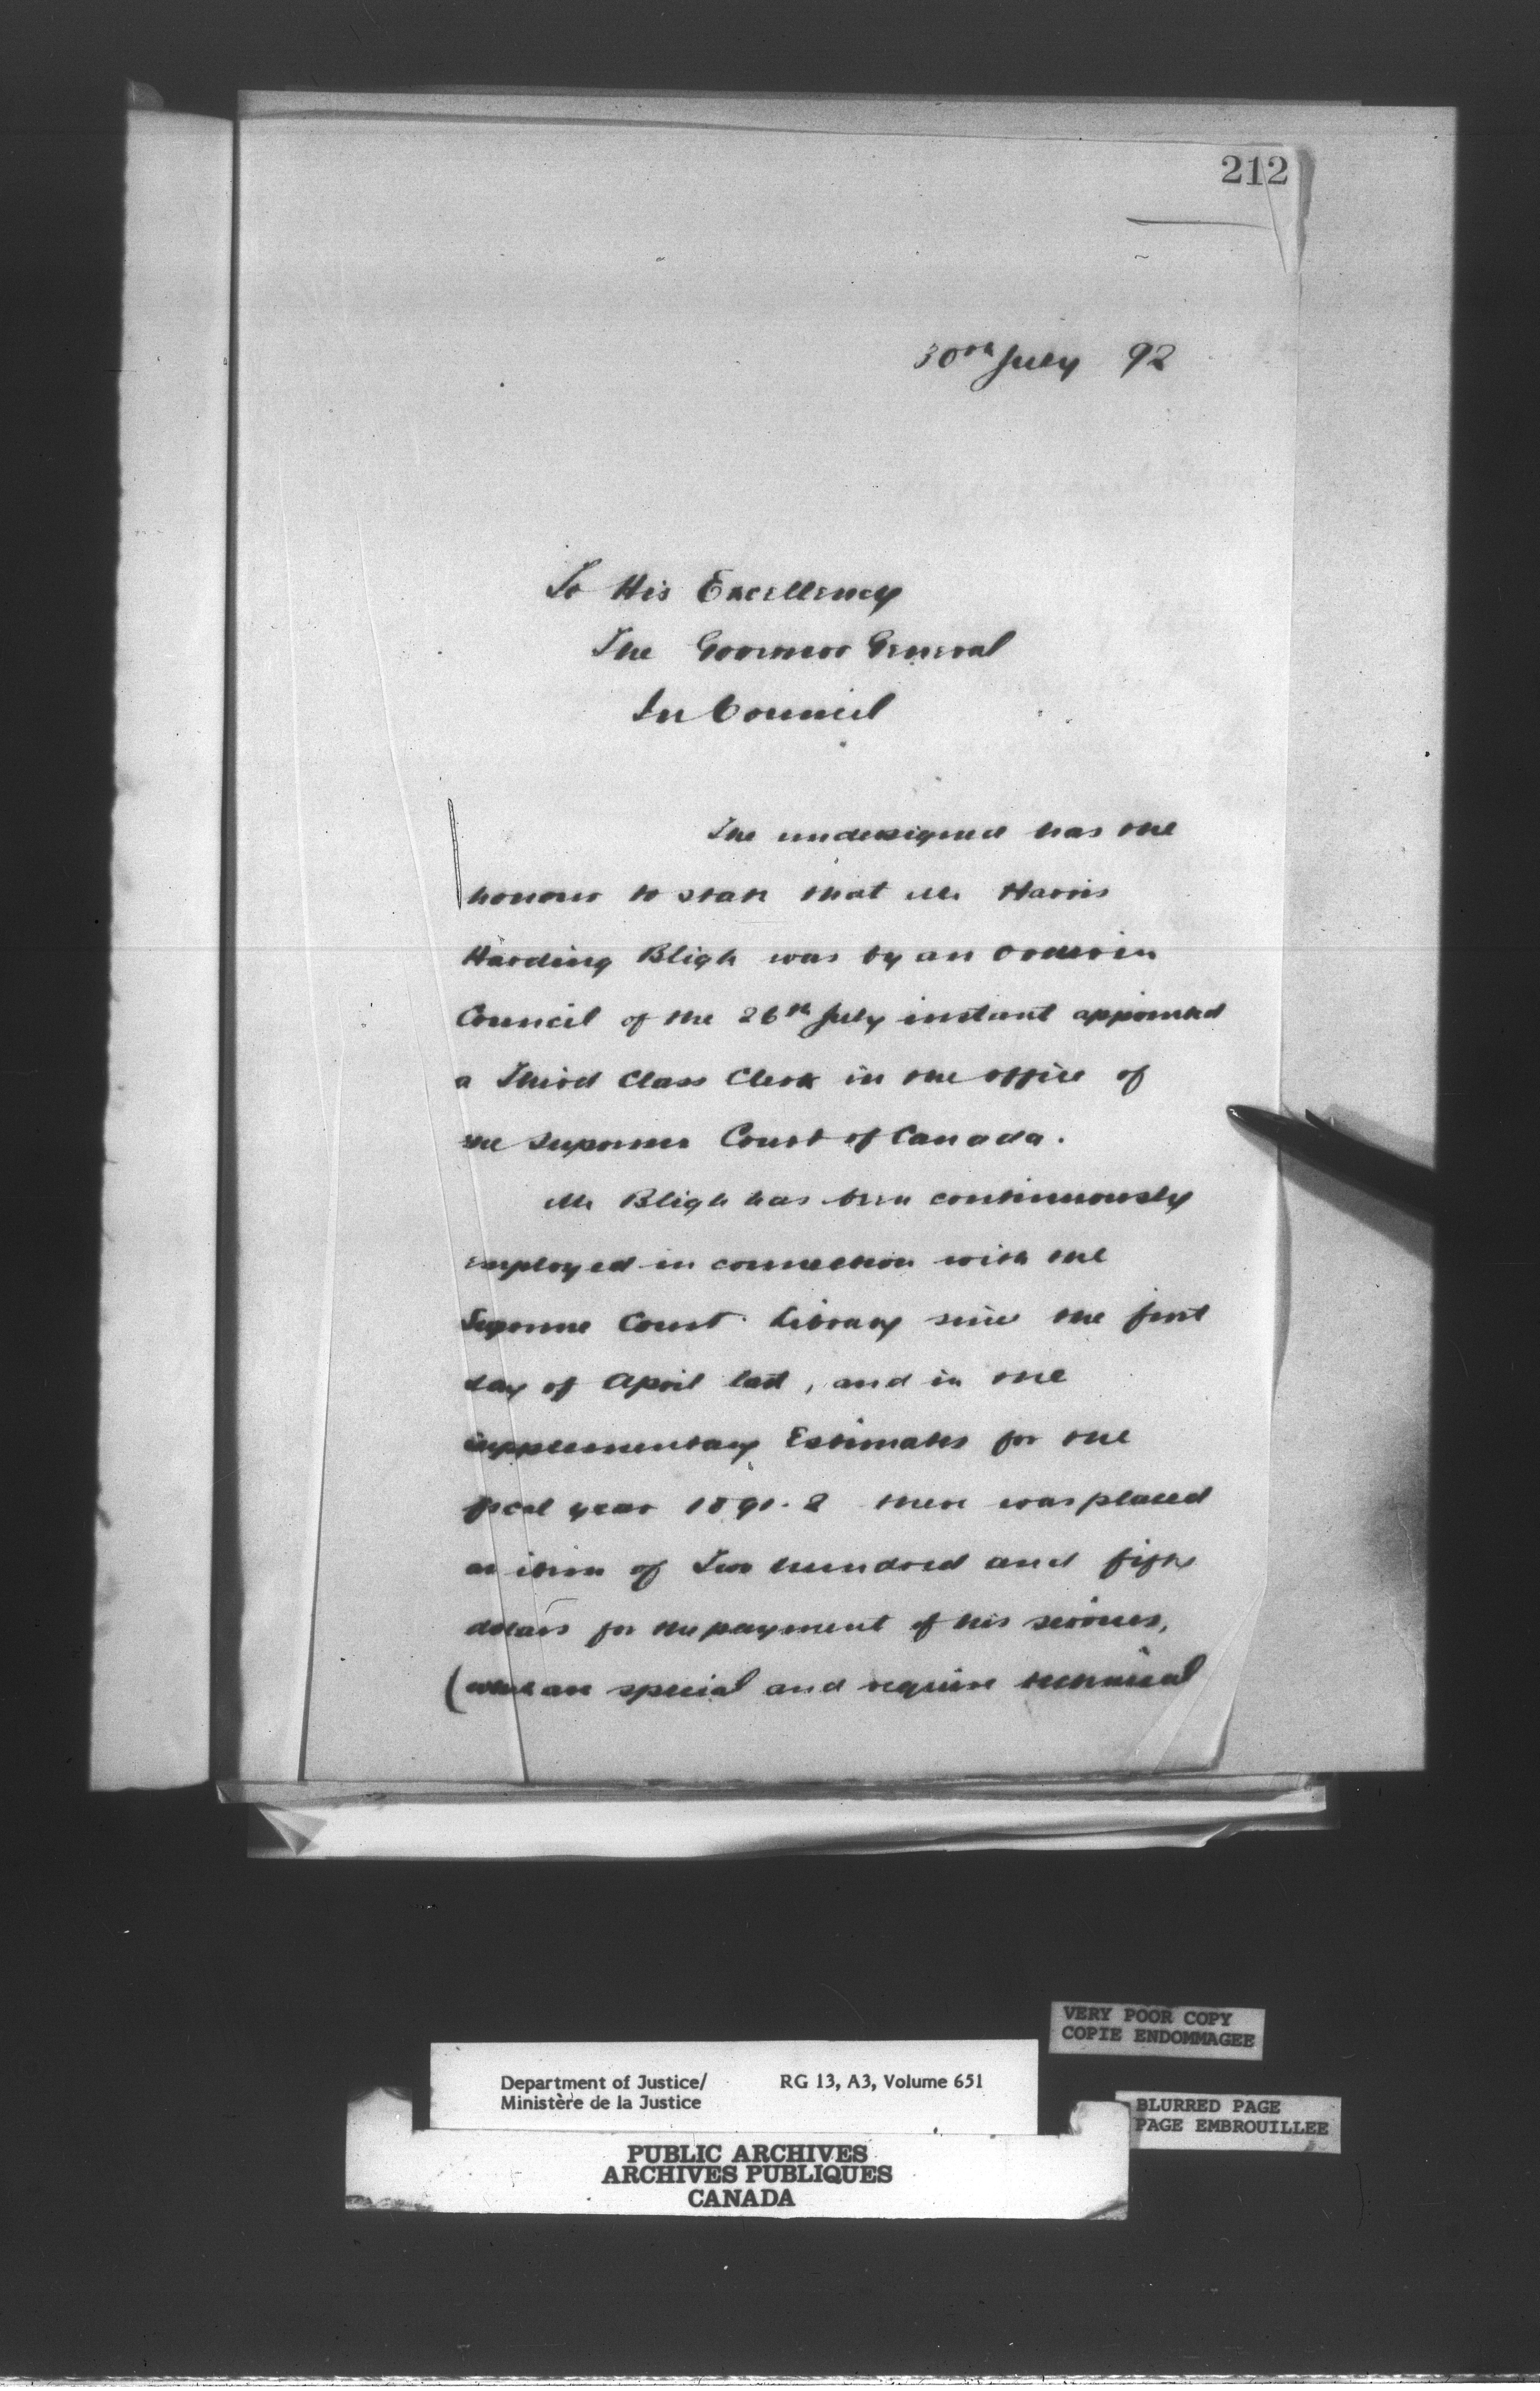 212
30th July 92
To His Excellency
The Governor General
In Council
The undersigned has the
honour to state that Mr Harris
Harding Bligh was by an Order in
Council of the 26th July instant appointed
a Third Class Clerk in the office of
the Supreme Court of Canada.
Mr Bligh has been continuously
employed in connection with the
Supreme Court Library since the first
day of April last, and in the
supplementary Estimates for the
fiscal year 1891-2 there was placed
an item of Two hundred and fifty
dollars for the payment of his services,
(which are special and require technical
VERY POOR COPY
COPIE ENDOMMAGEE
Department of Justice/ RG 13, A3, Volume 651
Ministère de la Justice
BLURRED PAGE
PAGE EMBROUILLEE
PUBLIC ARCHIVES
ARCHIVES PUBLIQUES
CANADA